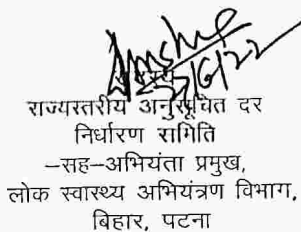 राज्यस्तरीय अनुसूचित दर
निर्धारण समिति
–सह–अभियंता प्रमुख,
लोक स्वास्थ्य अभियंत्रण विभाग,
बिहार, पटना